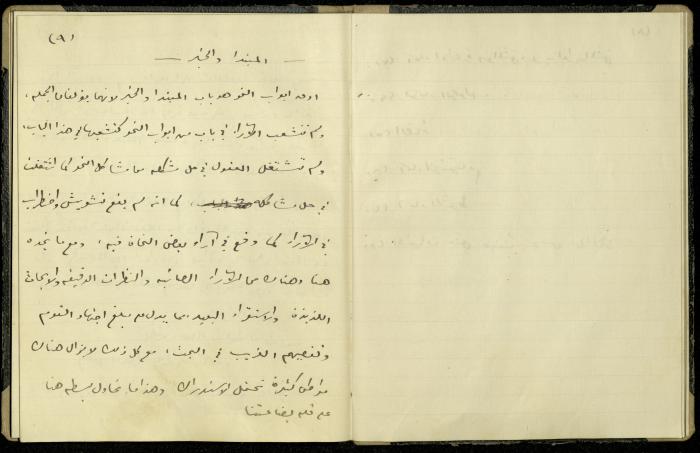 (٩)
المبتدا والخبر
اوعد ابواب النحو هو باب المبتدا والخبر لانهما يؤلفان الجمله ،
ولم تتشعب الآراء في باب من ابواب النحو كتشعبها في هذا الباب ،
ولم تشتغل العقول في حل مشكله من مشاكل النحو كما اشتغلت
في حل مشاكله ، كما انه لم يقع تشويش واضطراب
في الآراء كما وقع في آراء بعض النحاة فيه ، ومع ما نجده
هنا وهناك من الآراء الصائبه والنظرات الدقيقه والابحاث
اللذيذة والاستقراء البعيد مما يدل على مبلغ اجتهاد القوم
وتفهمهم الغريب في البحث ، مع كل ذلك لا يزال هناك
مواطن كثيرة تحتمل الاستدراك وهذا ما نحاول بسطه هنا
على قلة بضاعتنا